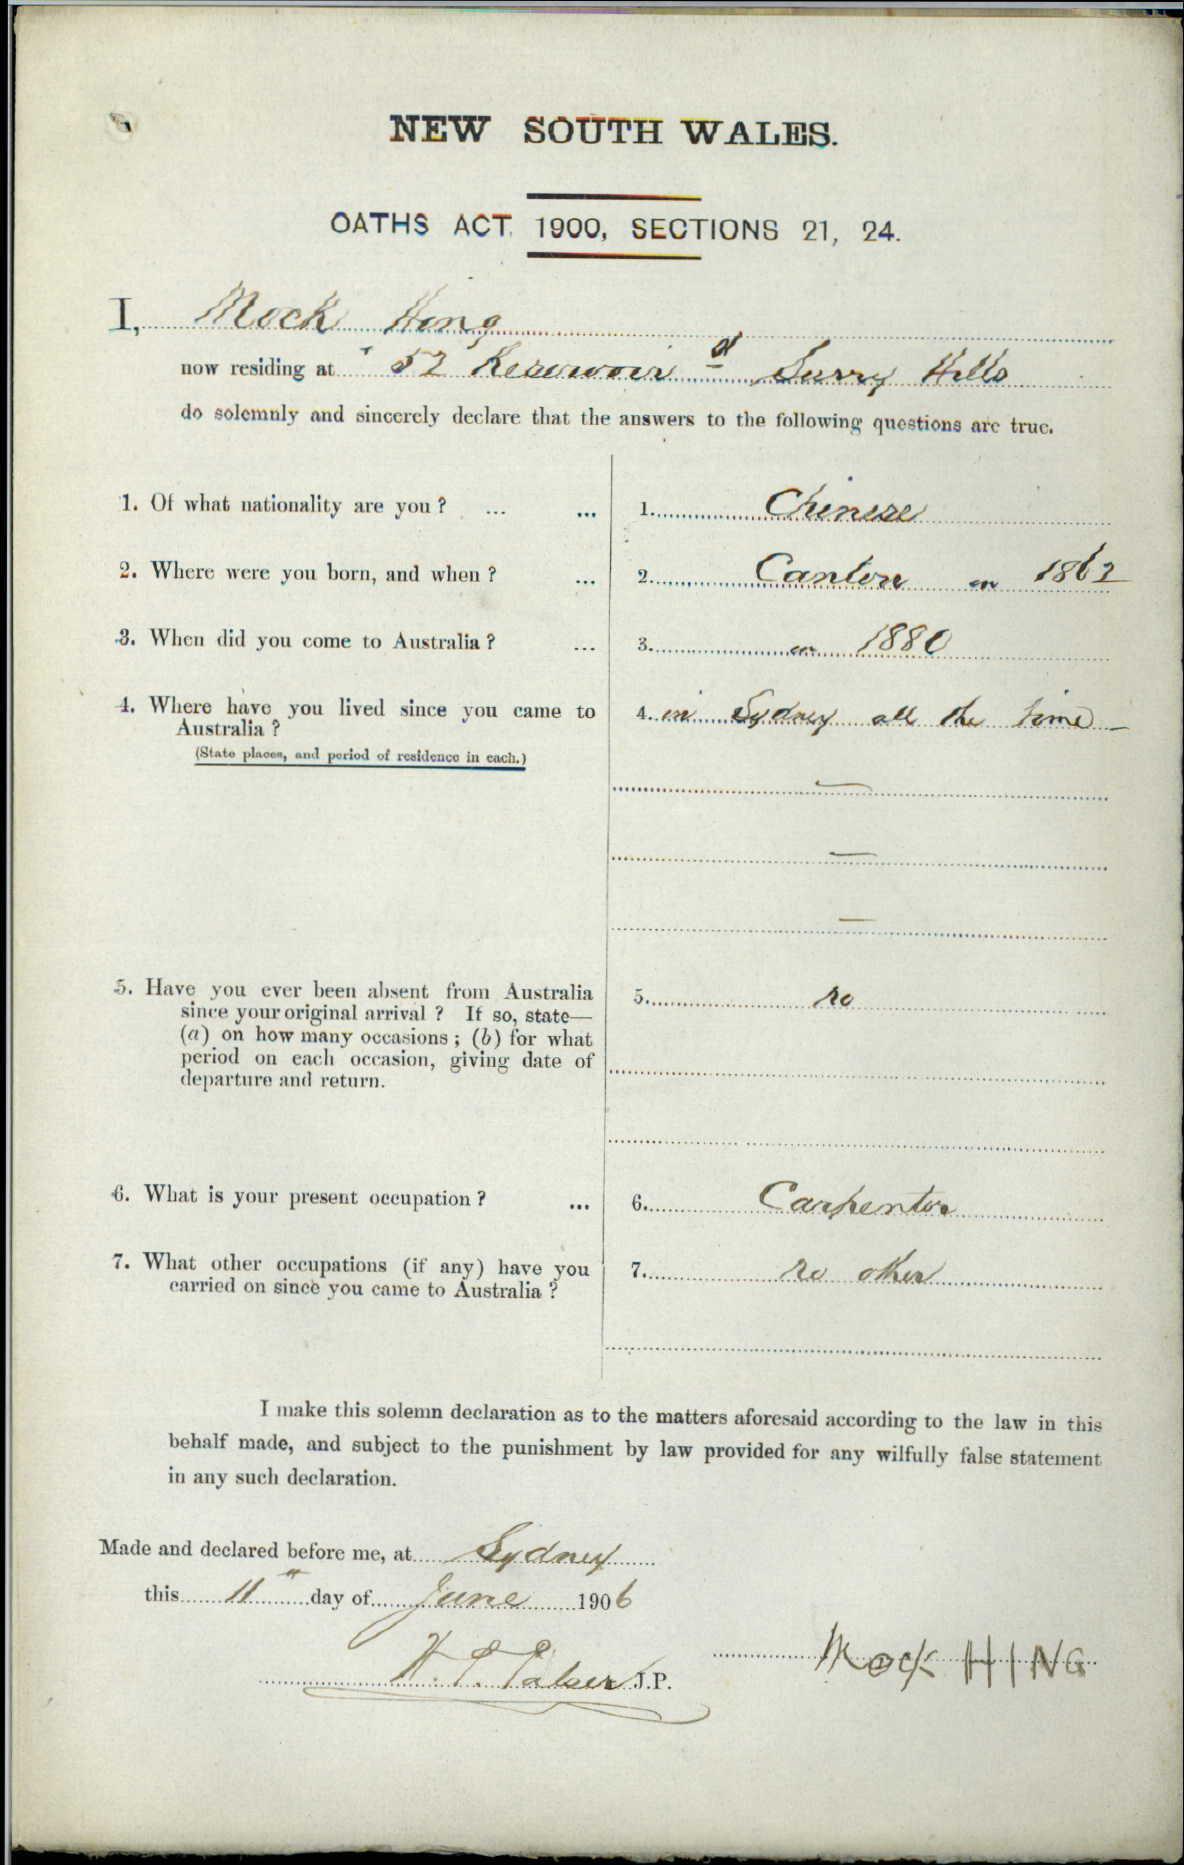 NEW SOUTH WALES.
OATHS ACT, 1900, SECTIONS 21, 24.
I, Mock Hing
now residing at 52 Reservoir st Surry Hills
do solemnly and sincerely declare that the answers to the following questions are true.
1. Of what nationality are you ? ... ... 1. Chinese
2. Where were you born, and when ? ... 2. Canton in 1862
3. When did you come to Australia ? ... 3. in 1880
4. Where have you lived since you came to 4. in Sydney all the time —
Australia ?
(State places, and period of residence in each.)
—
—
—
5. Have you ever been absent from Australia 5. no
since your original arrival ? If so, state—
(a) on how many occasions ; (b) for what
period on each occasion, giving date of
departure and return.
6. What is your present occupation ? ... 6. Carpenter
7. What other occupations (if any) have you 7. no other
carried on since you came to Australia ?
I make this solemn declaration as to the matters aforesaid according to the law in this
behalf made, and subject to the punishment by law provided for any wilfully false statement
in any such declaration.
Made and declared before me, at Sydney
this 11" day of June 1906
J.P.
Mock HING